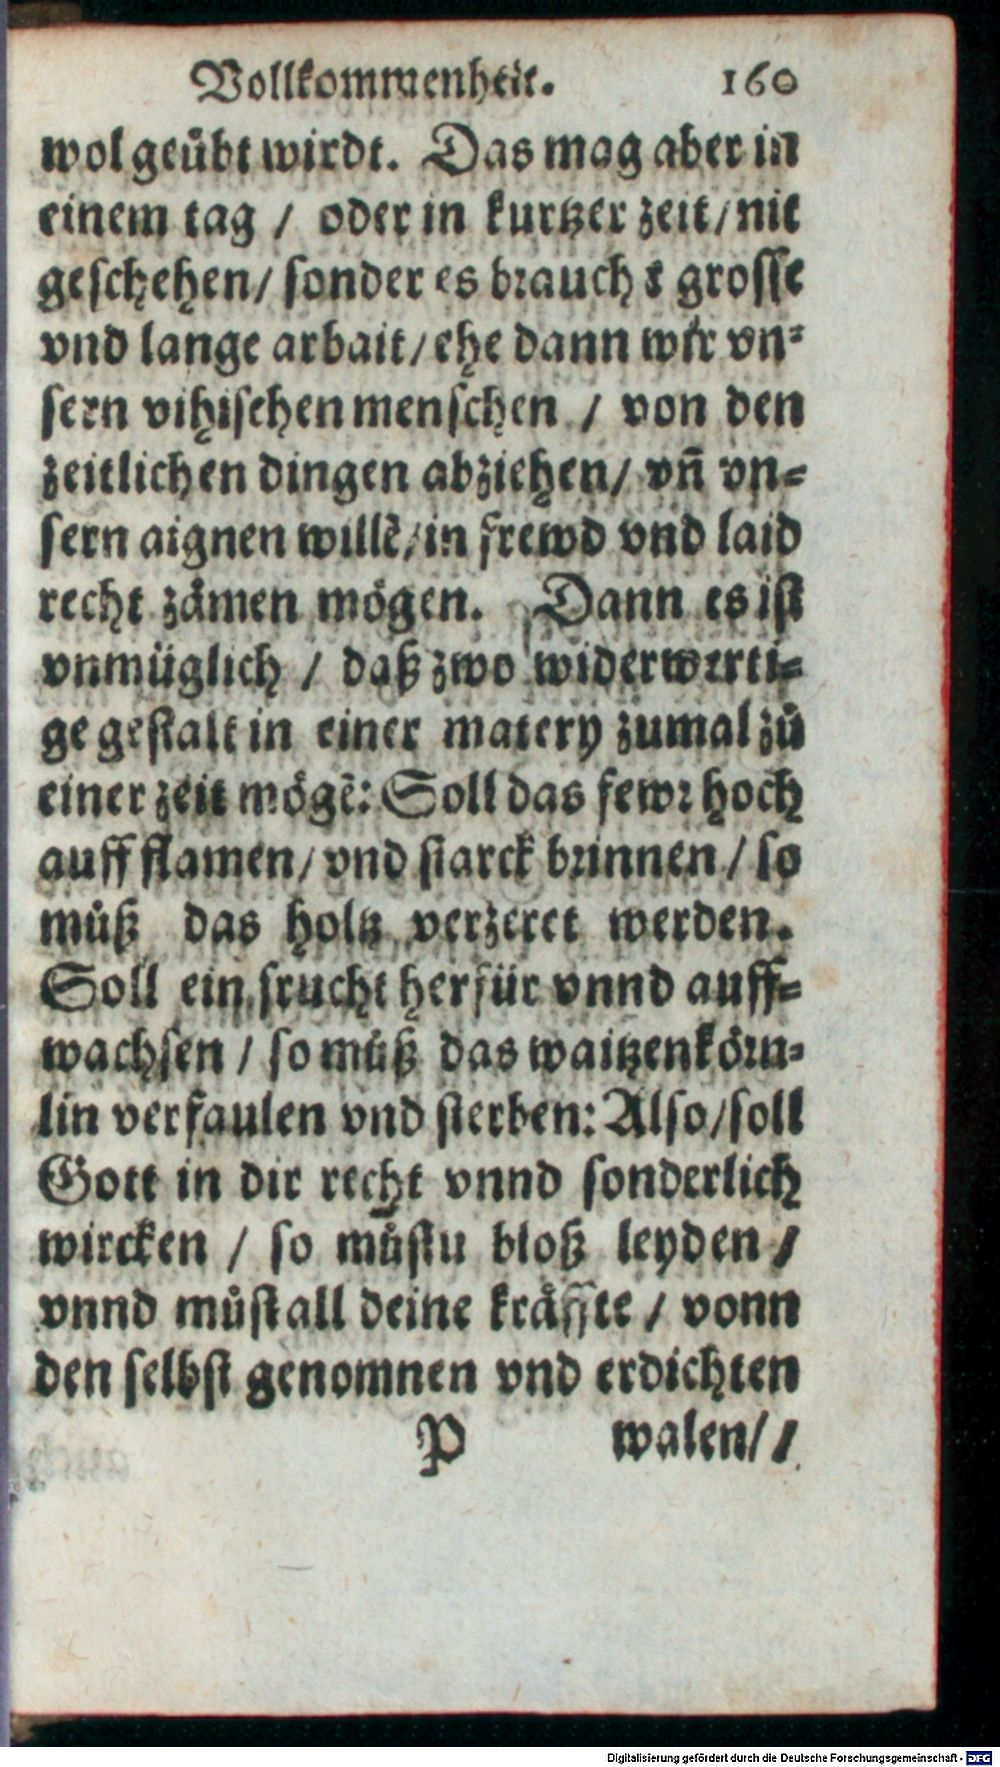 Vollkommenheit. 160
wol geuͤbt wirdt. Das mag aber in
einem tag / oder in kurtzer zeit / nit
geschehen / sonder es brauchs grosse
vnd lange arbait / ehe dann wir vn⸗
sern vihischen menschen / von den
zeitlichen dingen abziehen / vñ vn⸗
sern aignen willẽ / in frewd vnd laid
recht zaͤmen moͤgen. Dann es ist
vnmüglich / daß zwo widerwerti⸗
ge gestalt in einer matery zumal zů
einer zeit moͤgẽ: Soll das fewr hoch
auff flamen / vnd starck brinnen / so
můß das holtz verzeret werden.
Soll ein frucht herfür vnnd auff⸗
wachsen / so můß das waitzenkoͤrn⸗
lin verfaulen vnd sterben: Also / soll
Gott in dir recht vnnd sonderlich
wircken / so můstu bloß leyden /
vnnd můst all deine kraͤffte / vonn
den selbst genomnen vnd erdichten
P walen / /
Digitalisierung gefördert durch die Deutsche Forschungsgemeinschaft - DFG